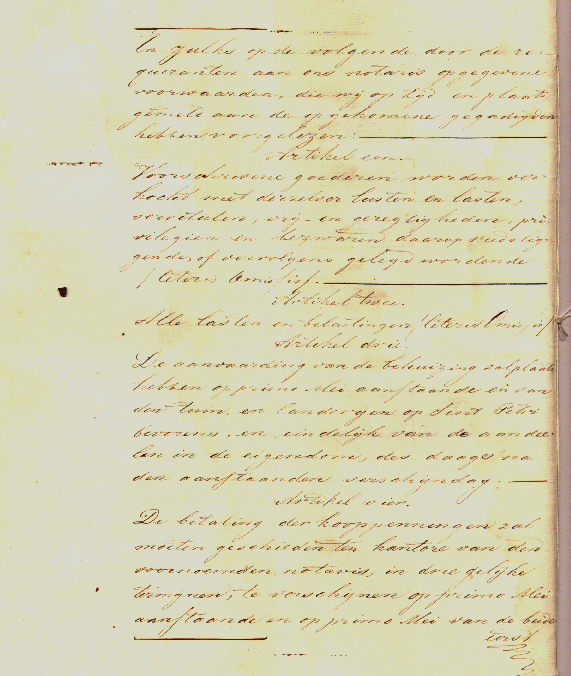 En zulks op de volgende door de re-
quiranten aan ons notaris opgegevene
voorwaarden, die wij op tijd en plaats
gemeld aan de opgekomene gegadigden
hebben voorgelezen:
Artikel een.
Voorschrevene goederen worden ver-
kocht met derzelver lusten en lasten,
vervallen, vrij- en geregtigheden, pri-
vilegien en bezwaren daarop
gende, of vervolgens gelegd wordende
Artikel twee.
Alle lasten en belastingen,
Artikel drie.
De aanvaarding van de behuizing zal plaats
hebben op primo Mei aanstaande en van
den tuin en landerijen op Sint Petri
bevorens, en eindelijk van de aandee-
len in de eigendom, des daags na
den aanstaanden verschijndag.
Artikel vier.
De betaling der kooppenningen zal
moeten geschieden ten kantore van den
voornoemden notaris, in drie gelijke
termijnen, te verschijnen op primo Mei
aanstaande en op primo Mei van de beide
eerst